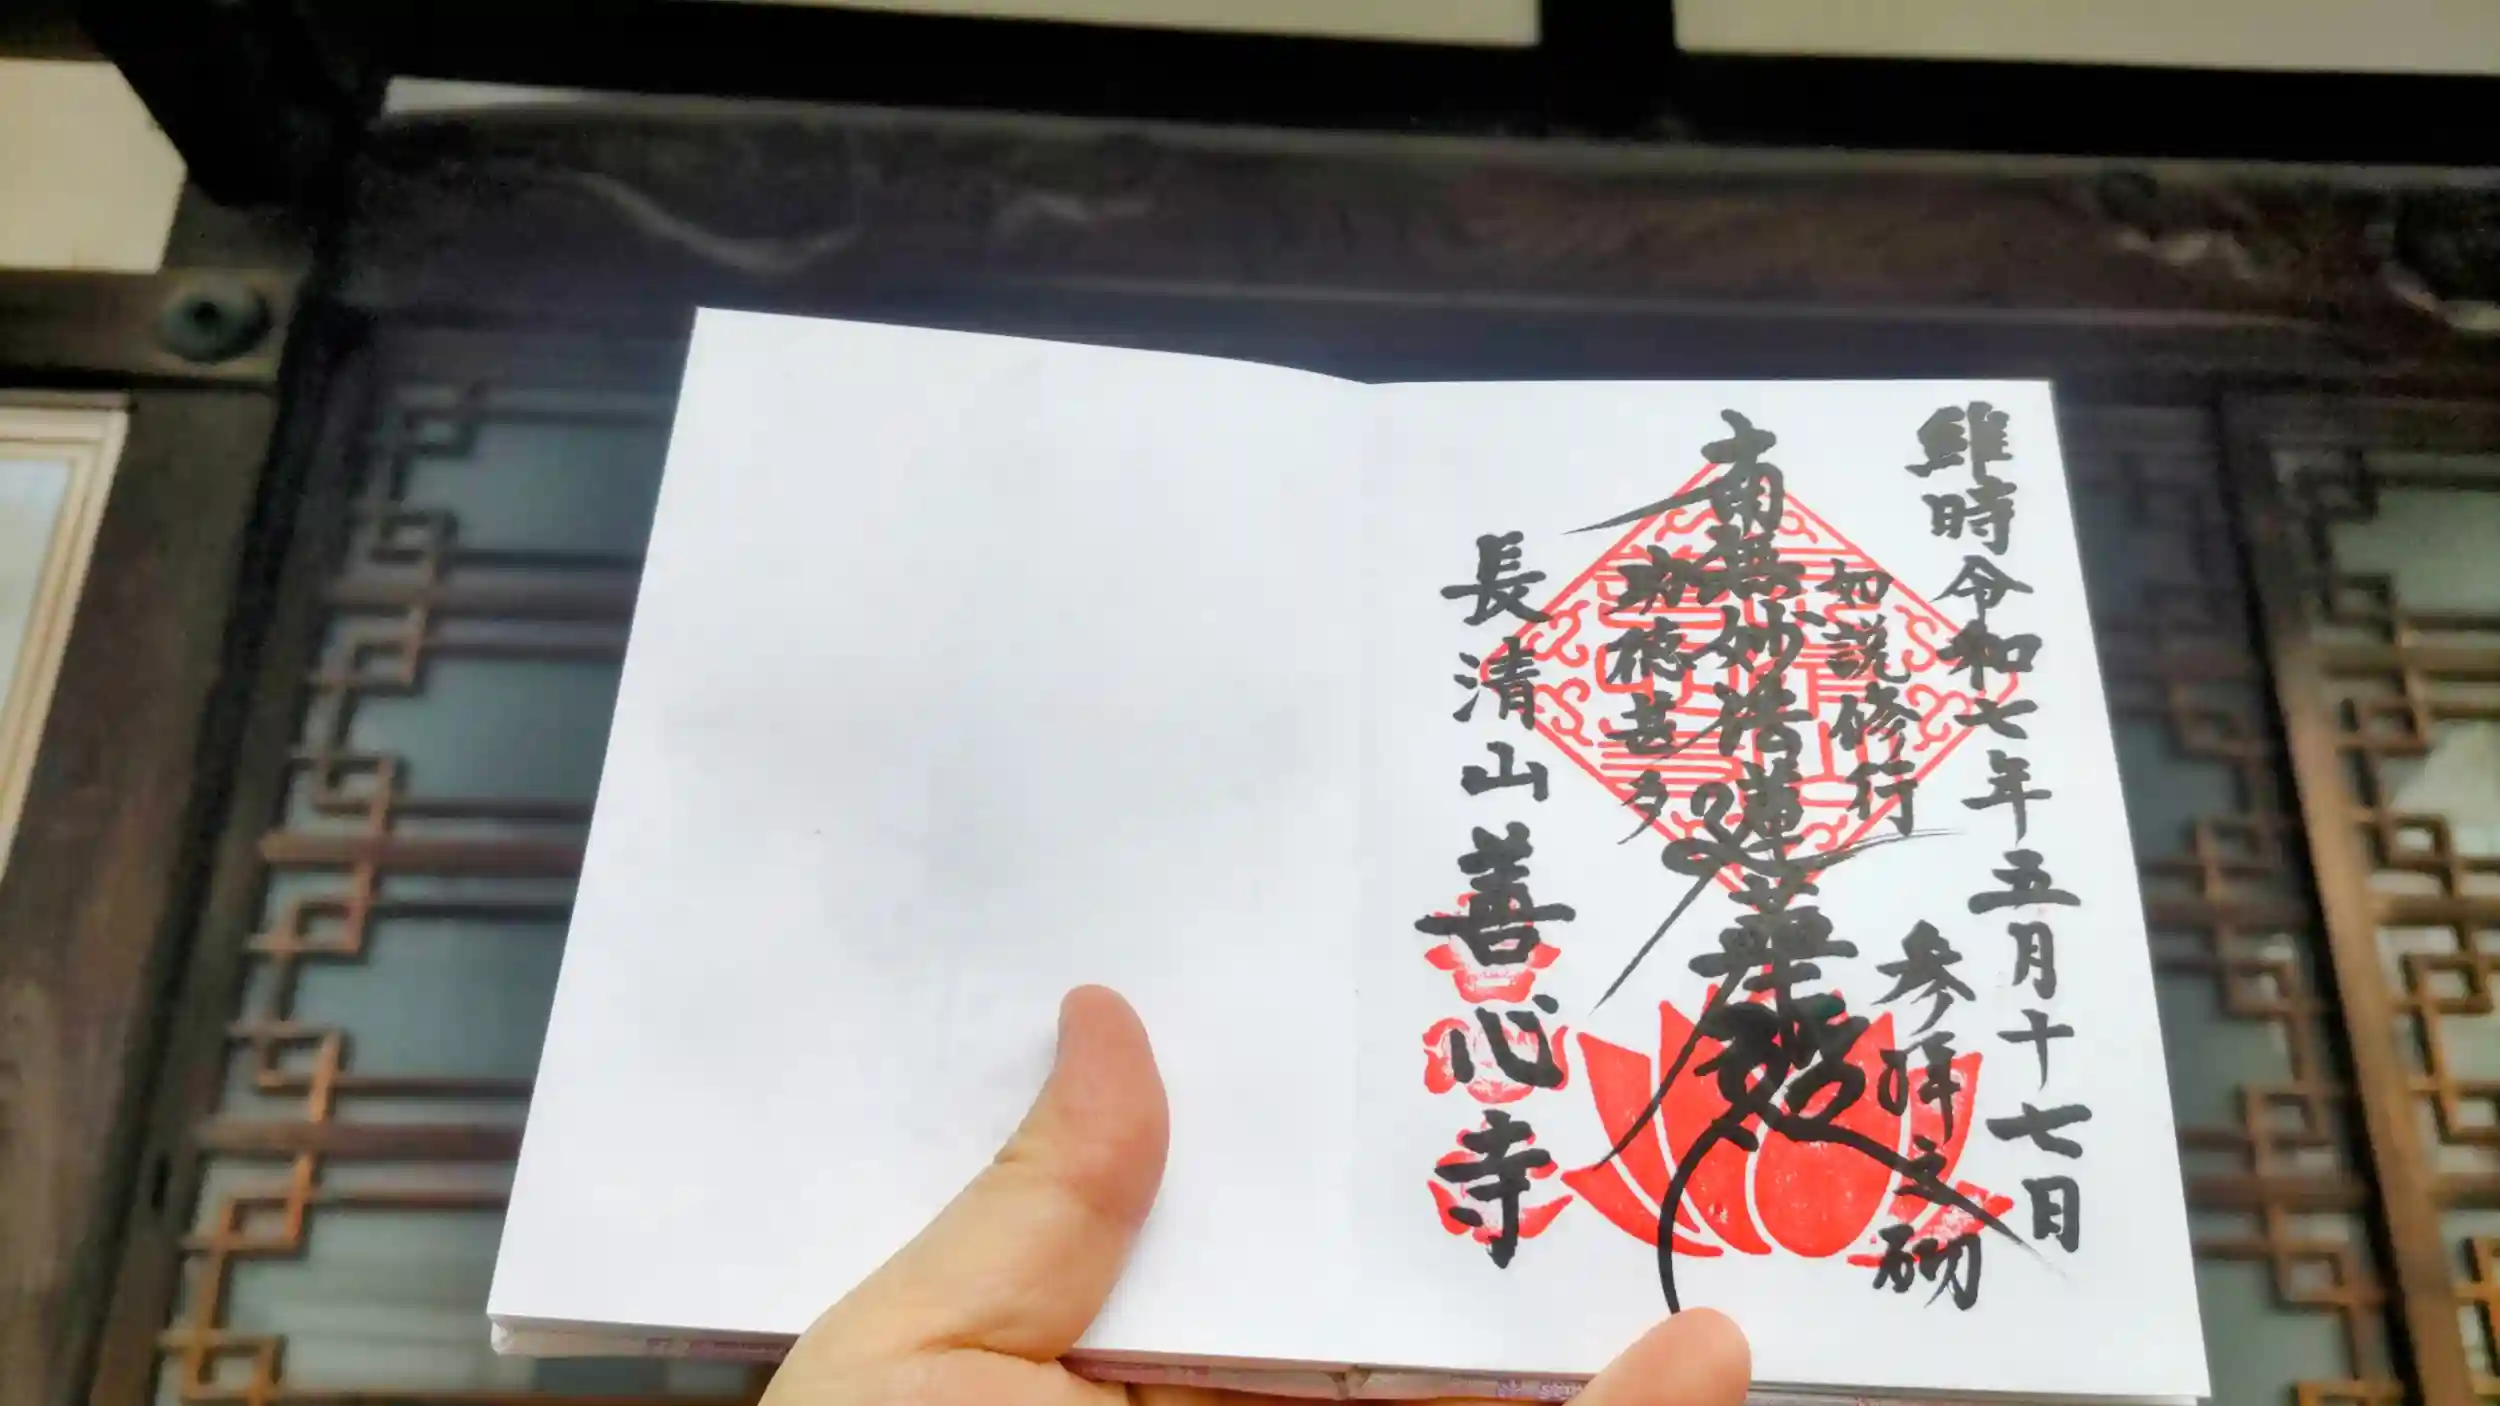 維時令和七年五月十七日
参拝之砌
如説修行
南無妙法蓮華経
功徳甚多
長清山 善心寺